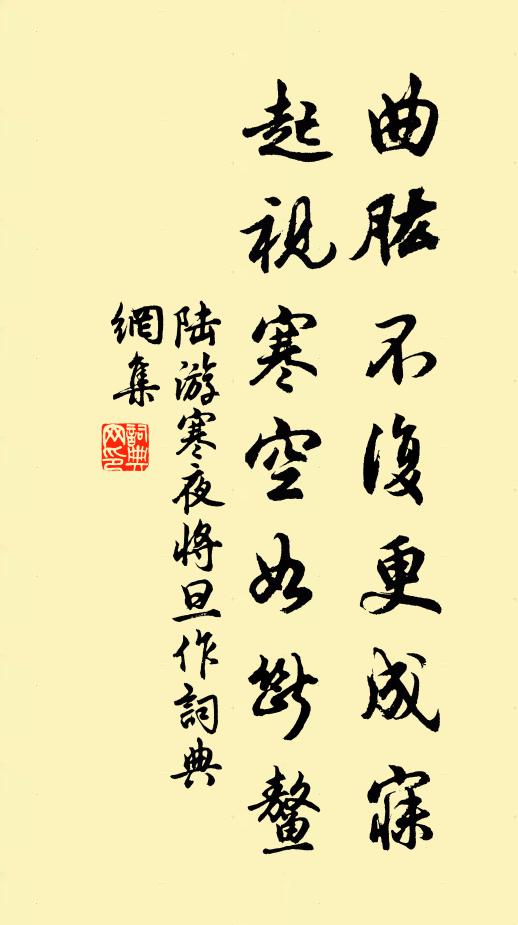 曲肱不復更成寐
起視寒空如斷鼇
陆游寒夜将旦作詞典
網集
詞典
网印